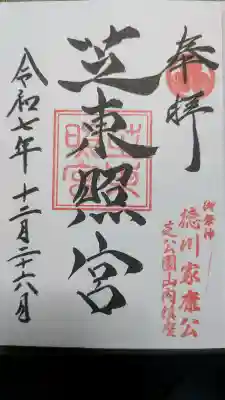 奉拝
御祭神
徳川家康公
芝公園山内鎮座
芝東照宮
芝東照宮
令和七年 十二月二十六日